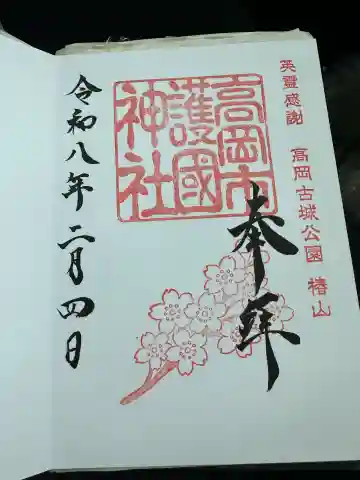 英霊感謝 高岡古城公園 椿山
奉拝
高岡市
護國
神社
令和八年二月四日